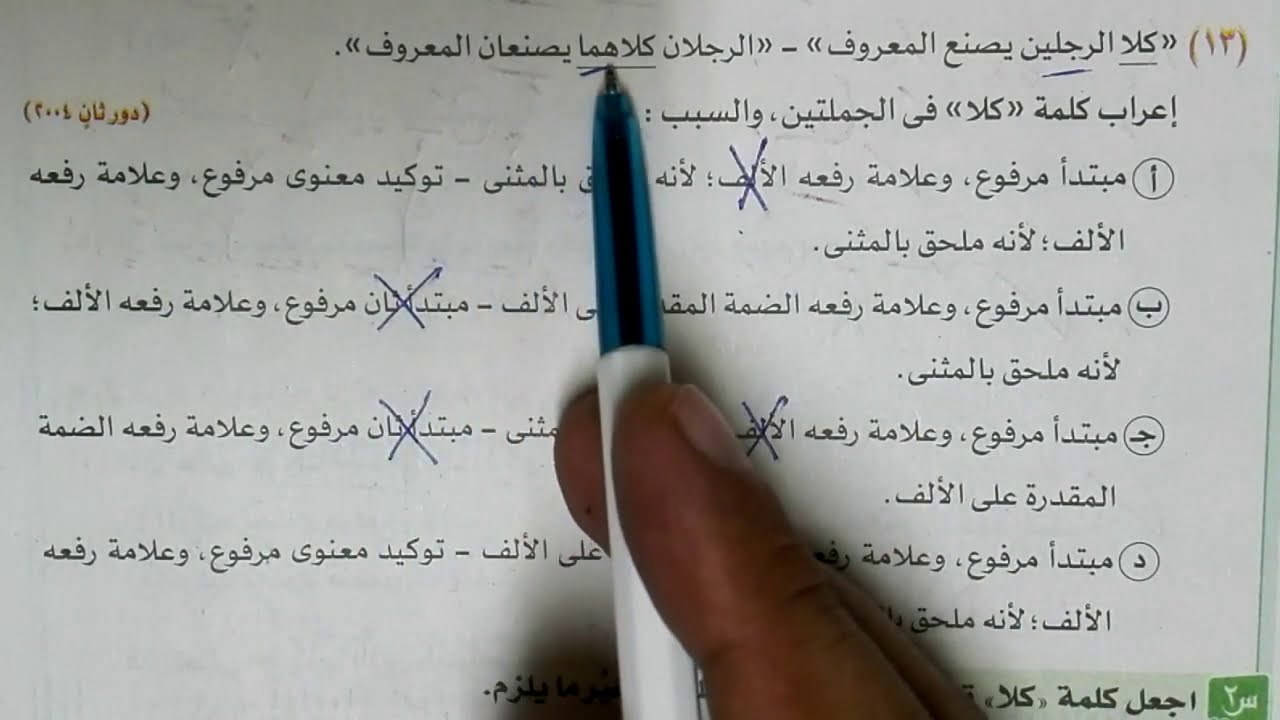 (١٣) «كلا الرجلين يصنع المعروف» - «الرجلان كلاهما يصنعان المعروف».
إعراب كلمة «كلا» فى الجملتين، والسبب :
(دور ثانٍ ٢٠٠٤)
أ مبتدأ مرفوع، وعلامة رفعه الألف؛ لأنه بالمثنى - توكيد معنوى مرفوع، وعلامة رفعه
الألف؛ لأنه ملحق بالمثنى.
ب مبتدأ مرفوع، وعلامة رفعه الضمة الألف - مبتدأ ثان مرفوع، وعلامة رفعه الألف؛
لأنه ملحق بالمثنى.
جـ مبتدأ مرفوع، وعلامة رفعه الألف - مبتدأ ثان مرفوع، وعلامة رفعه الضمة
المقدرة على الألف.
د مبتدأ مرفوع، وعلامة على الألف - توكيد معنوى مرفوع، وعلامة رفعه
الألف؛ لأنه ملحق
س٢ اجعل كلمة «كلا» ما يلزم.